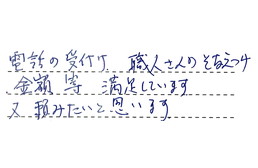 電話の受付け、職人さんのそなえつけ
金額等 満足しています
又頼みたいと思います